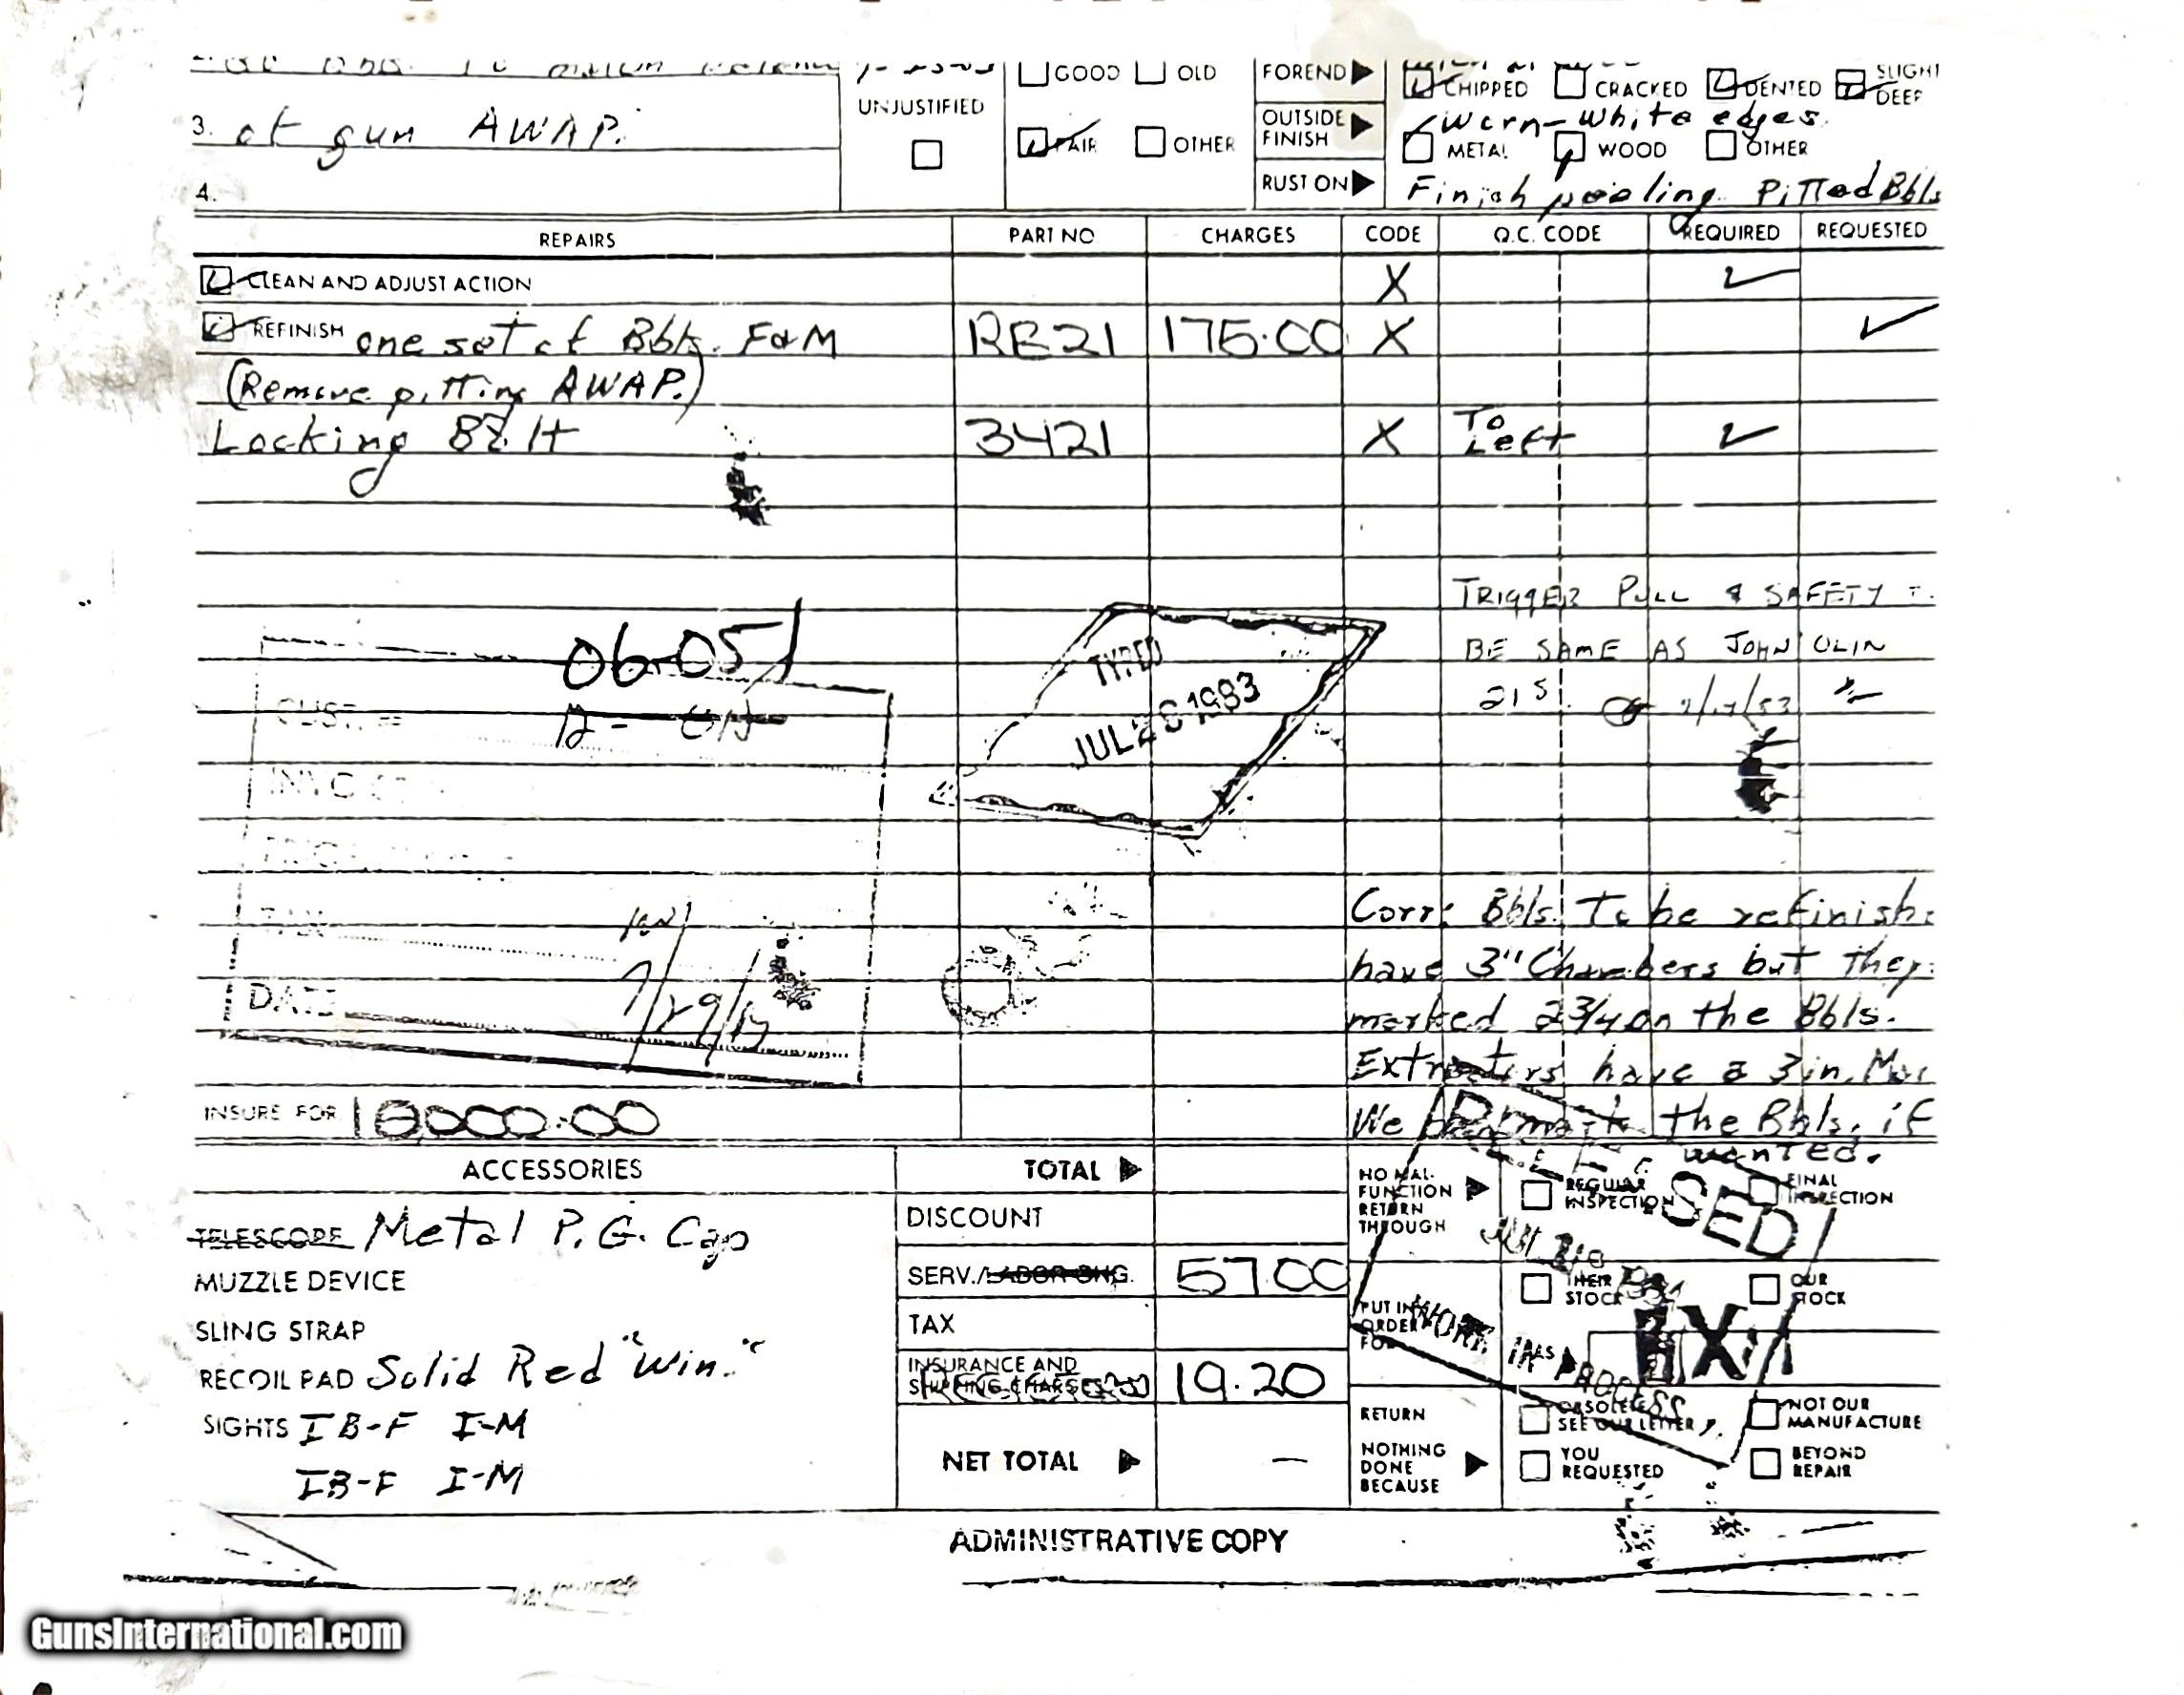 3. of gun AWAP.
4.
UNJUSTIFIED
GOOD OLD
FAIR OTHER
FOREND
OUTSIDE FINISH
RUST ON
CHIPPED CRACKED DENTED SLIGHT DEEP
Worn-white edges.
METAL WOOD OTHER
Finish peeling. Pitted Bbls
REPAIRS PART NO CHARGES CODE Q.C. CODE REQUIRED REQUESTED
CLEAN AND ADJUST ACTION X
REFINISH one set of Bbls. F&M RE21 175.00 X
(Remove pitting AWAP.)
Locking Bolt 3421 X To Left
TRIGGER PULL & SAFETY
BE SAME AS JOHN OLIN
21S
06-051
CUST.
TYPED
JUL 28 1983
DATE
Corr: Bbls. To be refinish
have 3" Chambers but they
marked 2 3/4 on the Bbls.
Extractors have a 3 in.
We the Bbls. if
wanted.
INSURE FOR 10,000.00
ACCESSORIES
TELESCOPE Metal P.G. Cap
MUZZLE DEVICE
SLING STRAP
RECOIL PAD Solid Red "Win."
SIGHTS IB-F I-M
IB-F I-M
TOTAL
DISCOUNT
SERV./LABOR CHG. 57.00
TAX
INSURANCE AND SHIPPING CHARGES 19.20
NET TOTAL —
NO MALFUNCTION RETURN THROUGH
REGULAR INSPECTION
FINAL INSPECTION
PUT IN ORDER FOR
THEIR STOCK
OUR STOCK
WORK IN PROCESS
RETURN NOTHING DONE BECAUSE
OBSOLETE SEE OUR LETTER
NOT OUR MANUFACTURE
YOU REQUESTED
BEYOND REPAIR
ADMINISTRATIVE COPY
GunsInternational.com